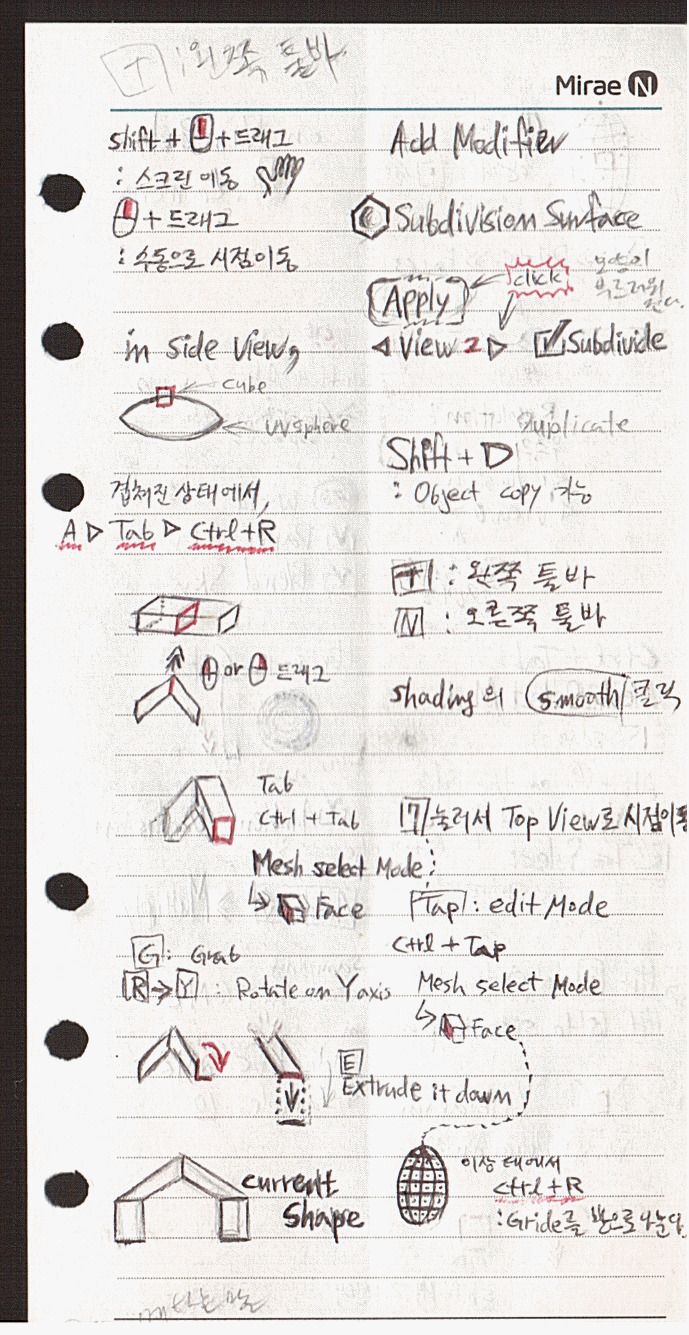 + : 왼쪽 툴바
Mirae N
shift + + 드래그
: 스크린 이동
+ 드래그
: 수동으로 시점이동
in side View,
cube
UVsphere
겹쳐진 상태에서,
A ▷ Tab ▷ Ctrl+R
or 드래그
Tab
Ctrl + Tab
Mesh select Mode
↳ Face
G : Grab
R → Y : Rotate on Yaxis
E
Extrude it down
current
Shape
Add Modifier
Subdivision Surface
click
모양이
부드러워
진다.
Apply
◁ View 2 ▷ ☑ Subdivide
Duplicate
Shift + D
: Object copy 가능
+ : 왼쪽 툴바
N : 오른쪽 툴바
shading의 smooth 클릭
7 눌러서 Top View로 시점이동
Tap : edit Mode
Ctrl + Tap
Mesh select Mode
↳ Face
이상태에서
Ctrl+R
: Gride를 반으로 나눈다.